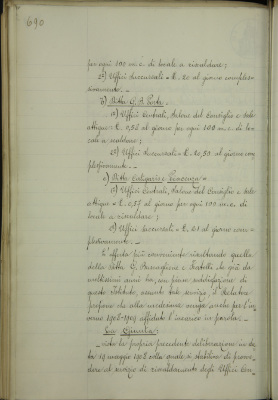 690
per ogni 100 m.c. di locale a riscaldare;
2°) Uffici Succursali = £. 20 al giorno comples-
sivamente. -
b) Ditta G. A. Porta. -
1°) Uffici Centrali, Salone del Consiglio e Sale
attigue = £. 0,92 al giorno per ogni 100 m.c. di lo-
cale a riscaldare;
2°) Uffici Succursali = £. 20,50 al giorno com-
plessivamente. -
c) Ditta Caligaris e Piacenza: =
1°) Uffici Centrali, Salone del Consiglio e Sale
attigue = £. 0,57 al giorno per ogni 100 m.c. di
locale a riscaldare;
2°) Uffici Succursali = £. 21 al giorno com-
plessivamente. -
L'offerta più conveniente risultando quella
della Ditta G. e Fratelli che già da
moltissimi anni ha, con piena soddisfazione di
questo Istituto, assunto tale servizio, il Relatore
propone che alla medesima venga anche per l'in-
verno 1908-1909 affidato l'incarico in parola. -
La Giunta:
Vista la propria precedente deliberazione in da-
ta 19 maggio 1908 colla quale si stabiliva di provve-
dere al servizio di riscaldamento degli Uffici Cen-